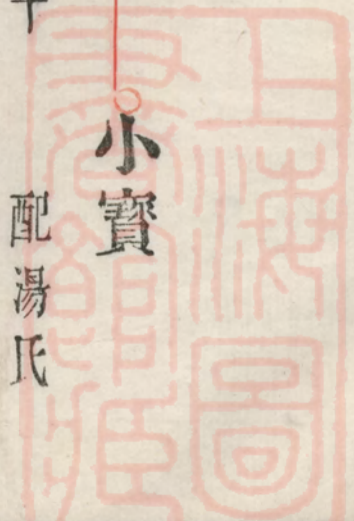 小寶
配湯氏
上海圖書館藏